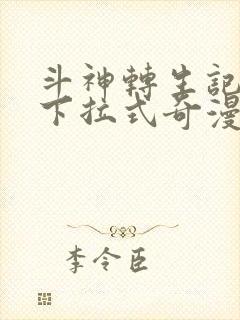 斗神轉生記
下拉式奇漫
李令臣